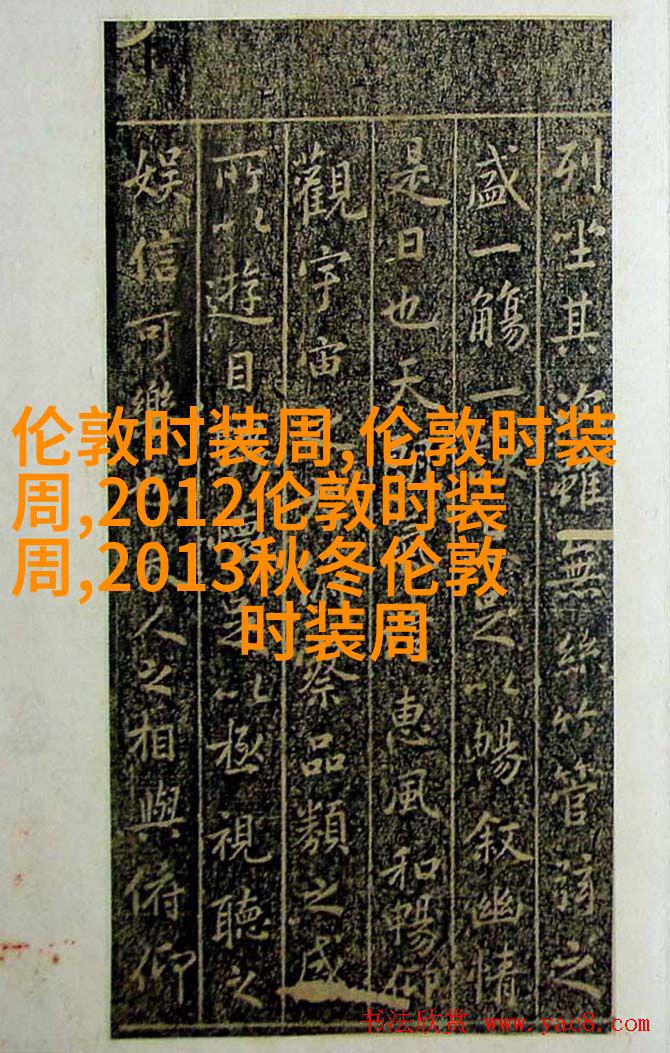 列坐其次雖無絲竹管弦之
盛一觴一足以暢叙幽情
是日也天惠風和暢仰
觀宇宙察品類之盛
所以遊目足以極視聽之
娱信可樂人之相與俯仰
伦敦时装周,伦敦时装
周,2012伦敦时装
周,2013秋冬伦敦
时装周
书法欣赏 www.yac8.com